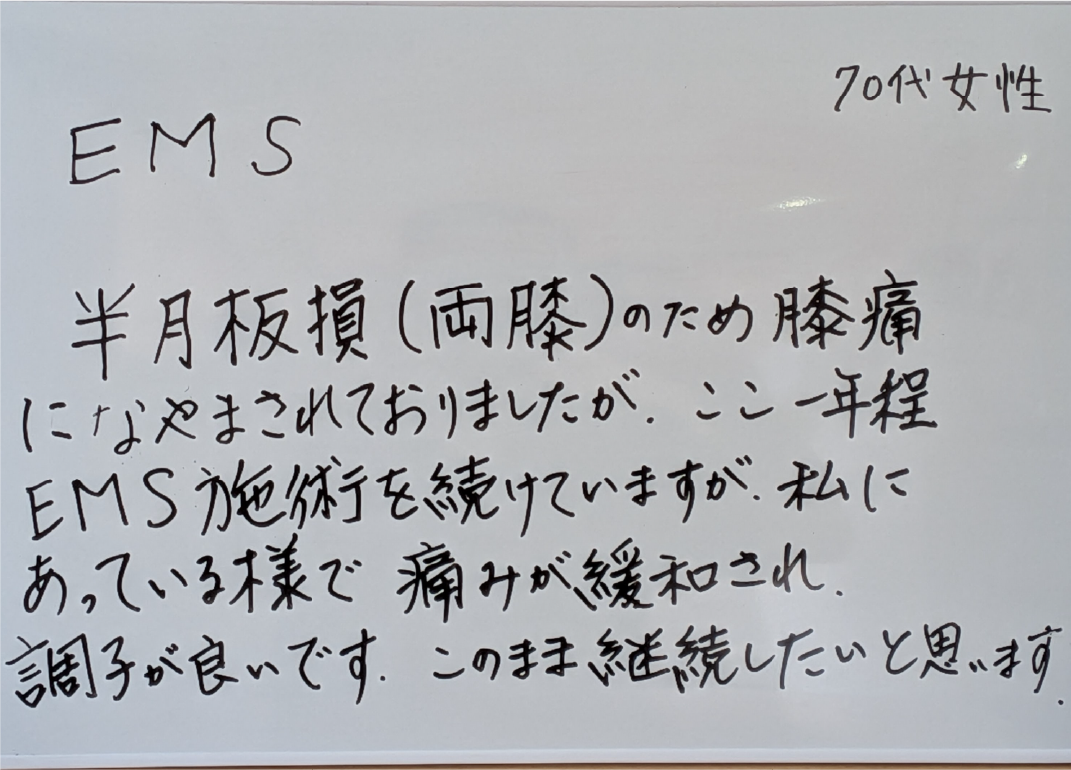 70代女性
EMS
半月板損(両膝)のため膝痛
になやまされておりましたが、ここ一年程
EMS施術を続けていますが、私に
あっている様で 痛みが緩和され、
調子が良いです。このまま継続したいと思います。